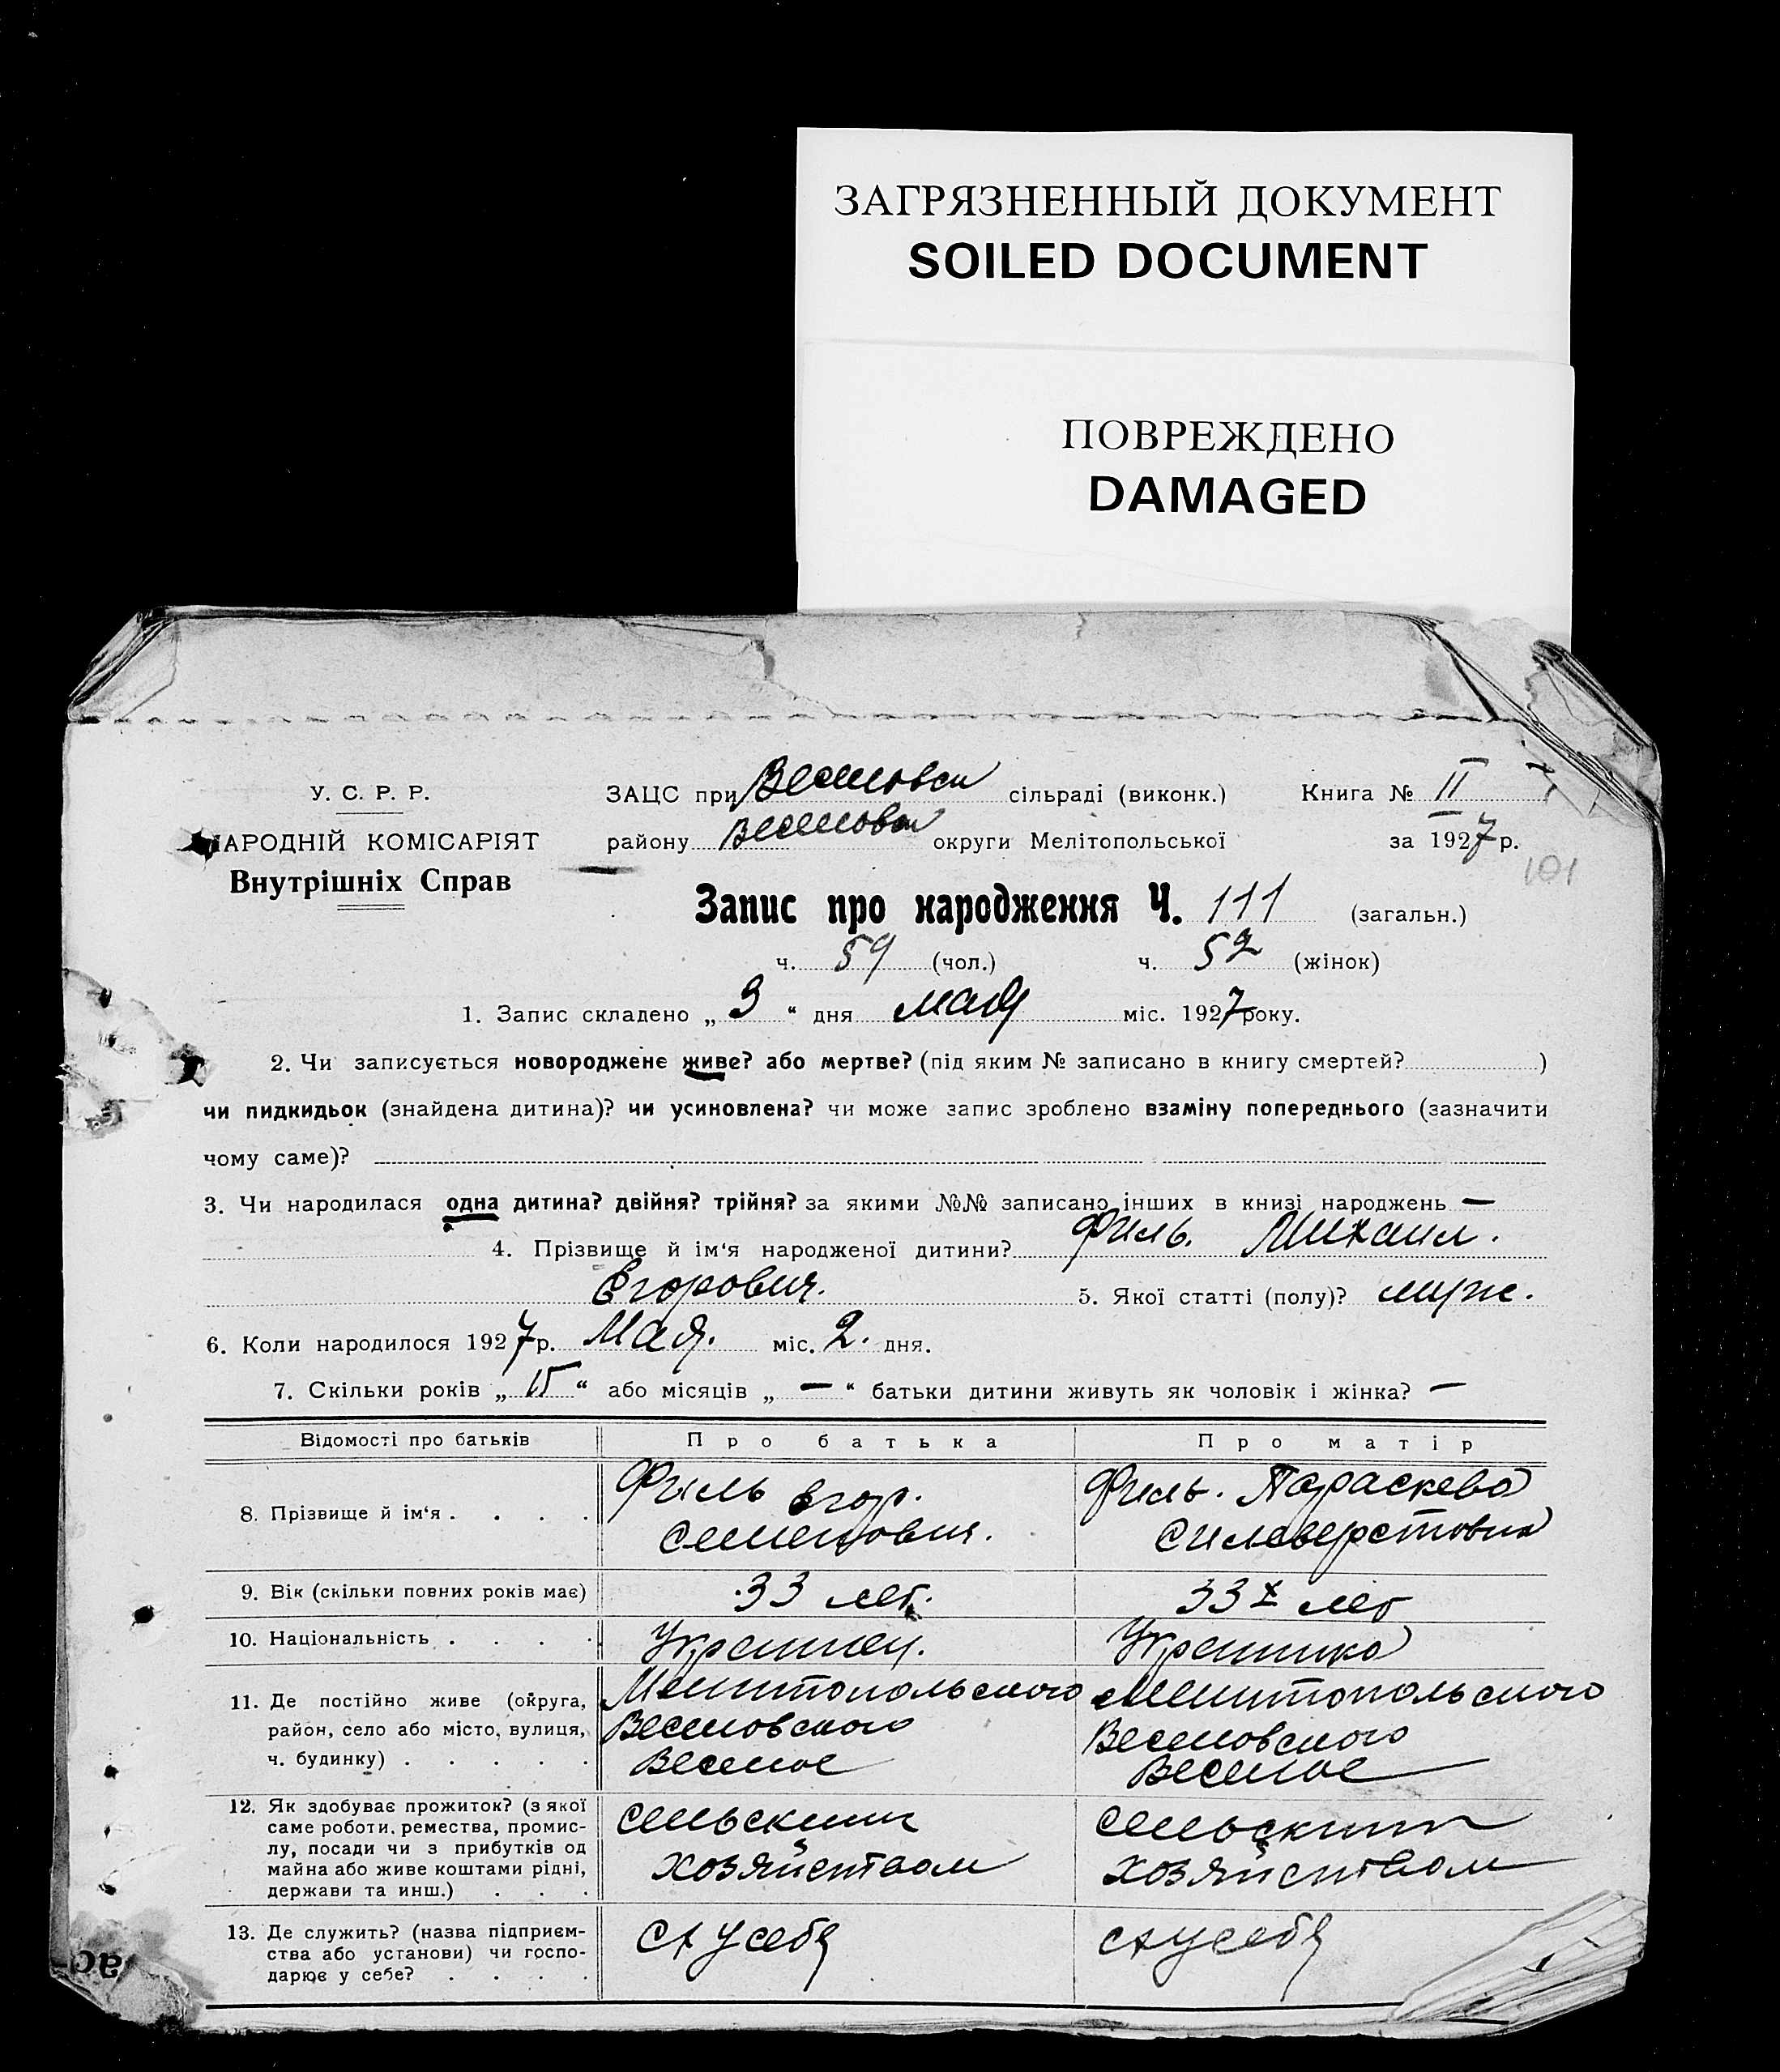 ЗАГРЯЗНЕННЫЙ ДОКУМЕНТ
SOILED DOCUMENT
ПОВРЕЖДЕНО
DAMAGED
У. С. Р. Р.
НАРОДНІЙ КОМІСАРІЯТ
Внутрішніх Справ
ЗАЦС при Веселовск сільраді (виконк.) Книга № II
району Веселовск округи Мелітопольської за 1927 р.
101
Запис про народження Ч. 111 (загальн.)
ч. 59 (чол.) ч. 52 (жінок)
1. Запис складено „ 3 “ дня мая міс. 1927 року.
2. Чи записується новороджене живе? або мертве? (під яким № записано в книгу смертей? )
чи пидкидьок (знайдена дитина)? чи усиновлена? чи може запис зроблено взаміну попереднього (зазначити
чому саме)?
3. Чи народилася одна дитина? двійня? трійня? за якими №№ записано інших в книзі народжень —
4. Прізвище й ім‘я народженої дитини? Филь. Михаил.
Егорович. 5. Якої статті (полу)? муж.
6. Коли народилося 1927 р. Мая. міс. 2. дня.
7. Скільки років „ “ або місяців „ — “ батьки дитини живуть як чоловік і жінка? —
Відомості про батьків Про батька Про матір
8. Прізвище й ім‘я . . . . Филь Егор. Семенович. Филь. Параскева Сильверстовна
9. Вік (скільки повних років має) 33 лет. 33 х лет
10. Національність . . . . Украинец. Украинка
11. Де постійно живе (округа, Мелитопольского Мелитопольского
район, село або місто, вулиця, Веселовского Веселовского
ч. будинку) . . . . . Веселое Веселое
12. Як здобуває прожиток? (з якої
саме роботи, ремества, промис-
лу, посади чи з прибутків од
майна або живе коштами рідні,
держави та инш.) . . .
сельским сельским
хозяйством хозяйством
13. Де служить? (назва підприєм-
ства або установи) чи госпо-
дарює у себе? . . . .
у себя у себя